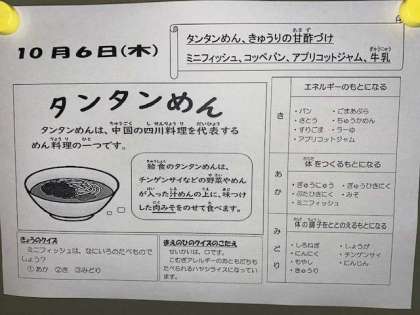 10月6日(木)
タンタンめん、きゅうりの甘酢づけ
ミニフィッシュ、コッペパン、アプリコットジャム、牛乳
タンタンめん
タンタンめんは、中国の四川料理を代表する
めん料理の一つです。
給食のタンタンめんは、
チンゲンサイなどの野菜やめん
が入った汁めんの上に、味つけ
した肉みそをのせて食べます。
きょうのクイズ
ミニフィッシュは、なにいろのたべものでし
ょう?
①あか ②き ③みどり
まえのひのクイズのこたえ
せいかいは、
こむぎアレルギーのおともだちも
たべられるハヤシライスになってい
ます。
き
エネルギーのもとになる
・パン ・ごまあぶら
・さとう ・ちゅうかめん
・すりごま ・ラーゆ
・アプリコットジャム
あか
体をつくるもとになる
・ぎゅうにゅう ・ぎゅうひきにく
・ぶたひきにく ・みそ
・ミニフィッシュ
みどり
体の調子をととのえるもとになる
・しろねぎ ・しょうが
・にんにく ・チンゲンサイ
・もやし ・にんじん
・きゅうり